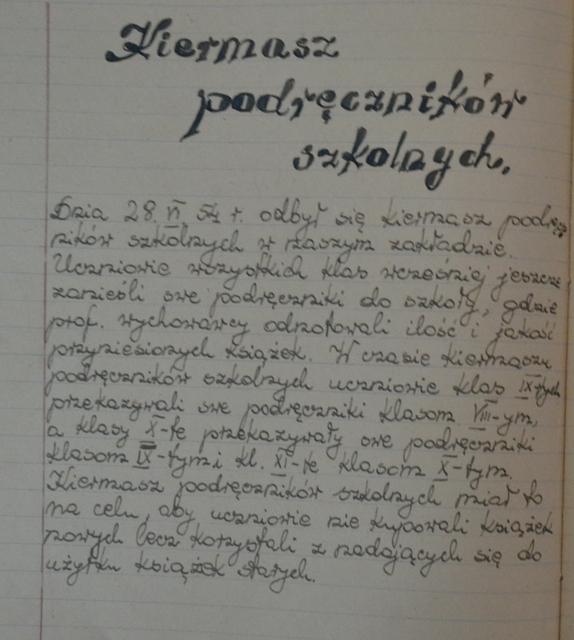 Kiermasz
podręczników
szkolnych.
Dnia 28. VI 54 r. odbył się kiermasz podręcz
ników szkolnych w naszym zakładzie.
Uczniowie wszystkich klas wcześniej jeszcze
zanieśli swe podręczniki do szkoły, gdzie
prof. wychowawcy odnotowali ilość i jakość
przyniesionych książek. W czasie kiermaszu
podręczników szkolnych uczniowie klas IX-tych
przekazywali swe podręczniki klasom VIII-ym,
a klasy X-te przekazywały swe podręczniki
klasom IX-tym i kl. XI-te klasom X-tym.
Kiermasz podręczników szkolnych miał to
na celu, aby uczniowie nie kupowali książek
nowych lecz korzystali z nadających się do
użytku książek starych.